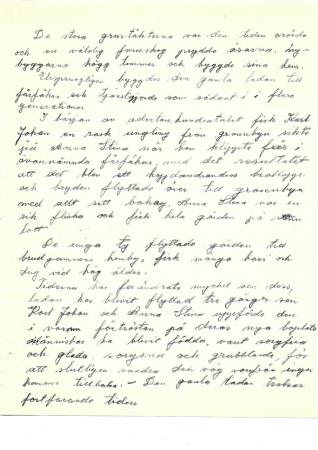 De stora grustäkterna var den tiden orörda
och en väldig furuskog prydde åsarna, ny-
byggarna högg timmer och byggde sina hem.
Ursprungligen byggdes den gamla ladan till
fårfähus och tjänstgjorde som sådant i flera
generationer
I början av adertonhundratalet fick Karl
Johan en rask yngling från grannbyn sikte
på Anna Stina när hon klippte får i
ovannämnda fårfähus, med det resultatet
att det blev ett bröllop
och bruden flyttade över till grannbyn
med allt sitt bohag, Anna Stina var en
rik flicka och fick hela gården på sin
lott
De unga tu flyttade gården till
brudgummens hemby, fick många barn och
dog vid hög ålder.
Tiderna har förändrats mycket sen dess,
ladan har blivit flyttad tre gånger sen
Karl Johan och Anna Stina uppförde den
i förtröstan på deras nya boplats
människor ha blivit födda, varit sorgfria
och glada, sorgsna och grubblande, för
att slutligen vandra den väg varifrån ingen
kommer tillbaka. - Den gamla ladan trotsar
fortfarande tiden